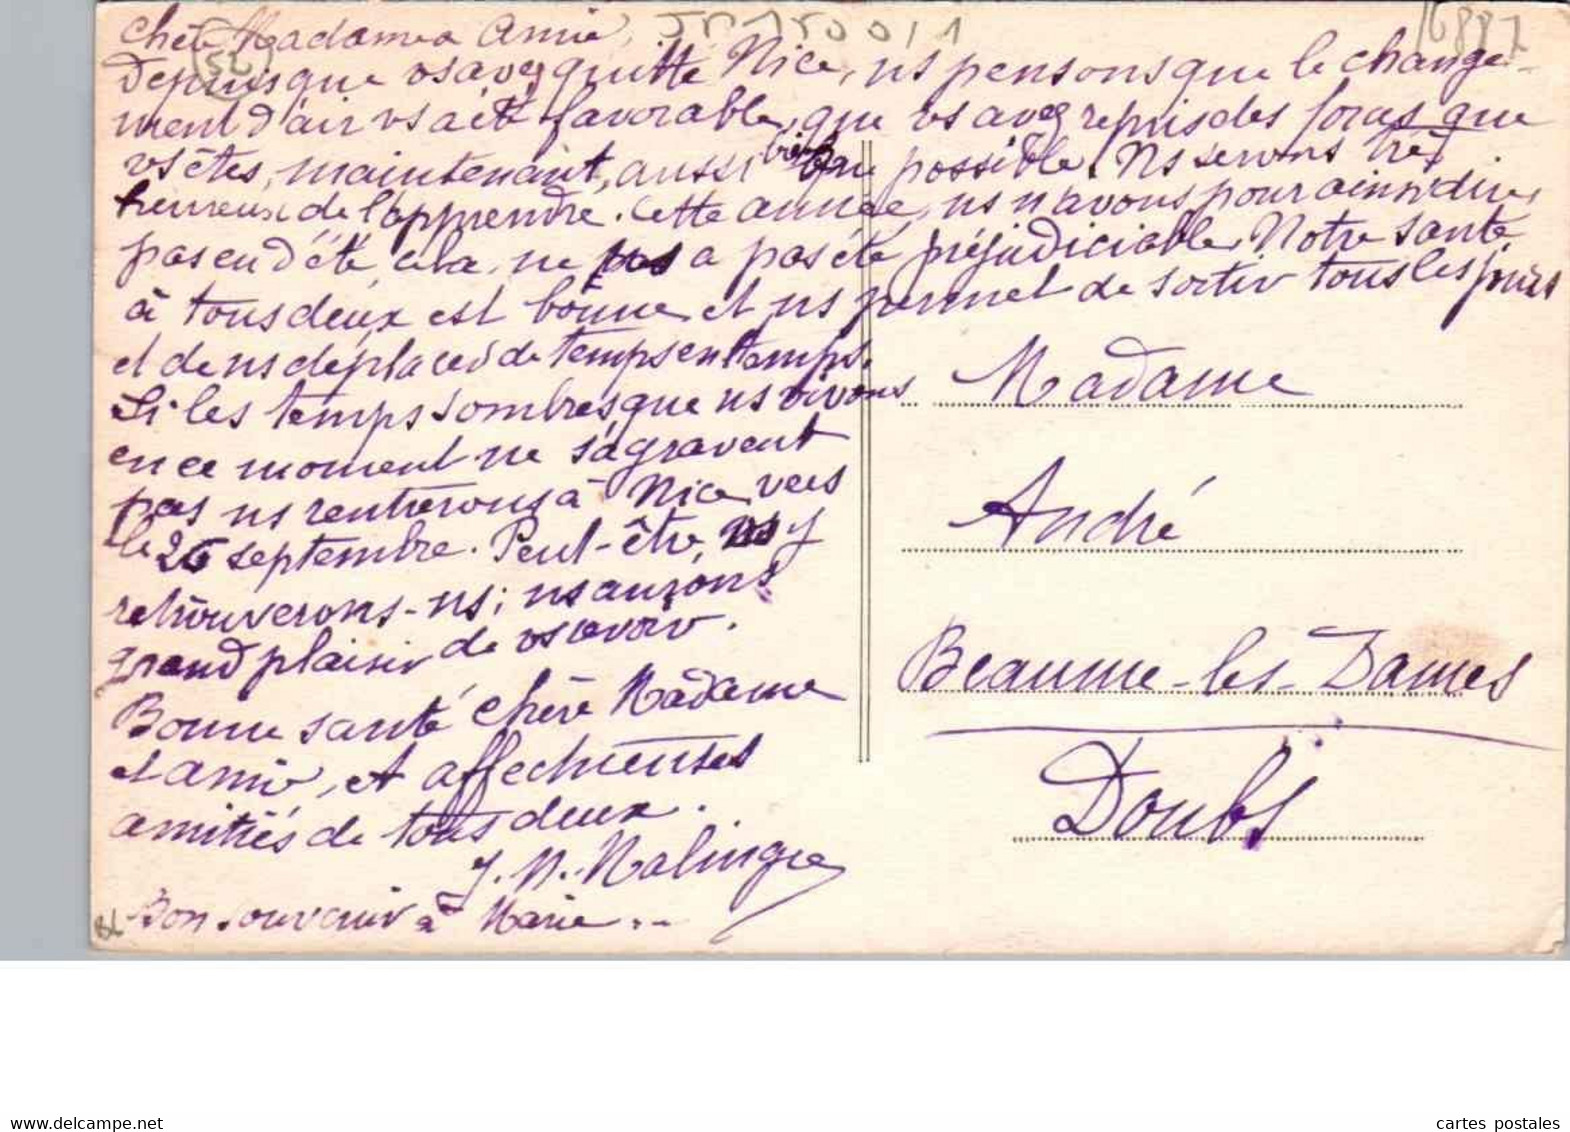 Chère Madame et Amie,
Depuis que vs avez quitté Nice, ns pensons que le change-
ment d'air vs a été favorable, que vs avez repris des forces que
vs êtes, maintenant, aussi bien que possible. Ns serons très
heureux de l'apprendre. Cette année, ns n'avons pour ainsi dire,
pas eu d'été cela, ne ns a pas été préjudiciable. Notre santé,
à tous deux est bonne et ns permet de sortir tous les jours
et de ns déplacer de temps en temps.
Si les temps sombres que ns vivons
en ce moment ne s'agravent
pas ns rentrerons à Nice vers
le 25 septembre. Peut-être, ns y
retrouverons-ns; ns aurons
grand plaisir de vs revoir.
Bonne santé chère Madame
et amie, et affectueuses
amitiés de tous deux.
J. M. Malingre
Bon souvenir à Marie...
Madame
André
Beaume-les-Dames
Doubs
16887
52
delcampe.net
cartes postales